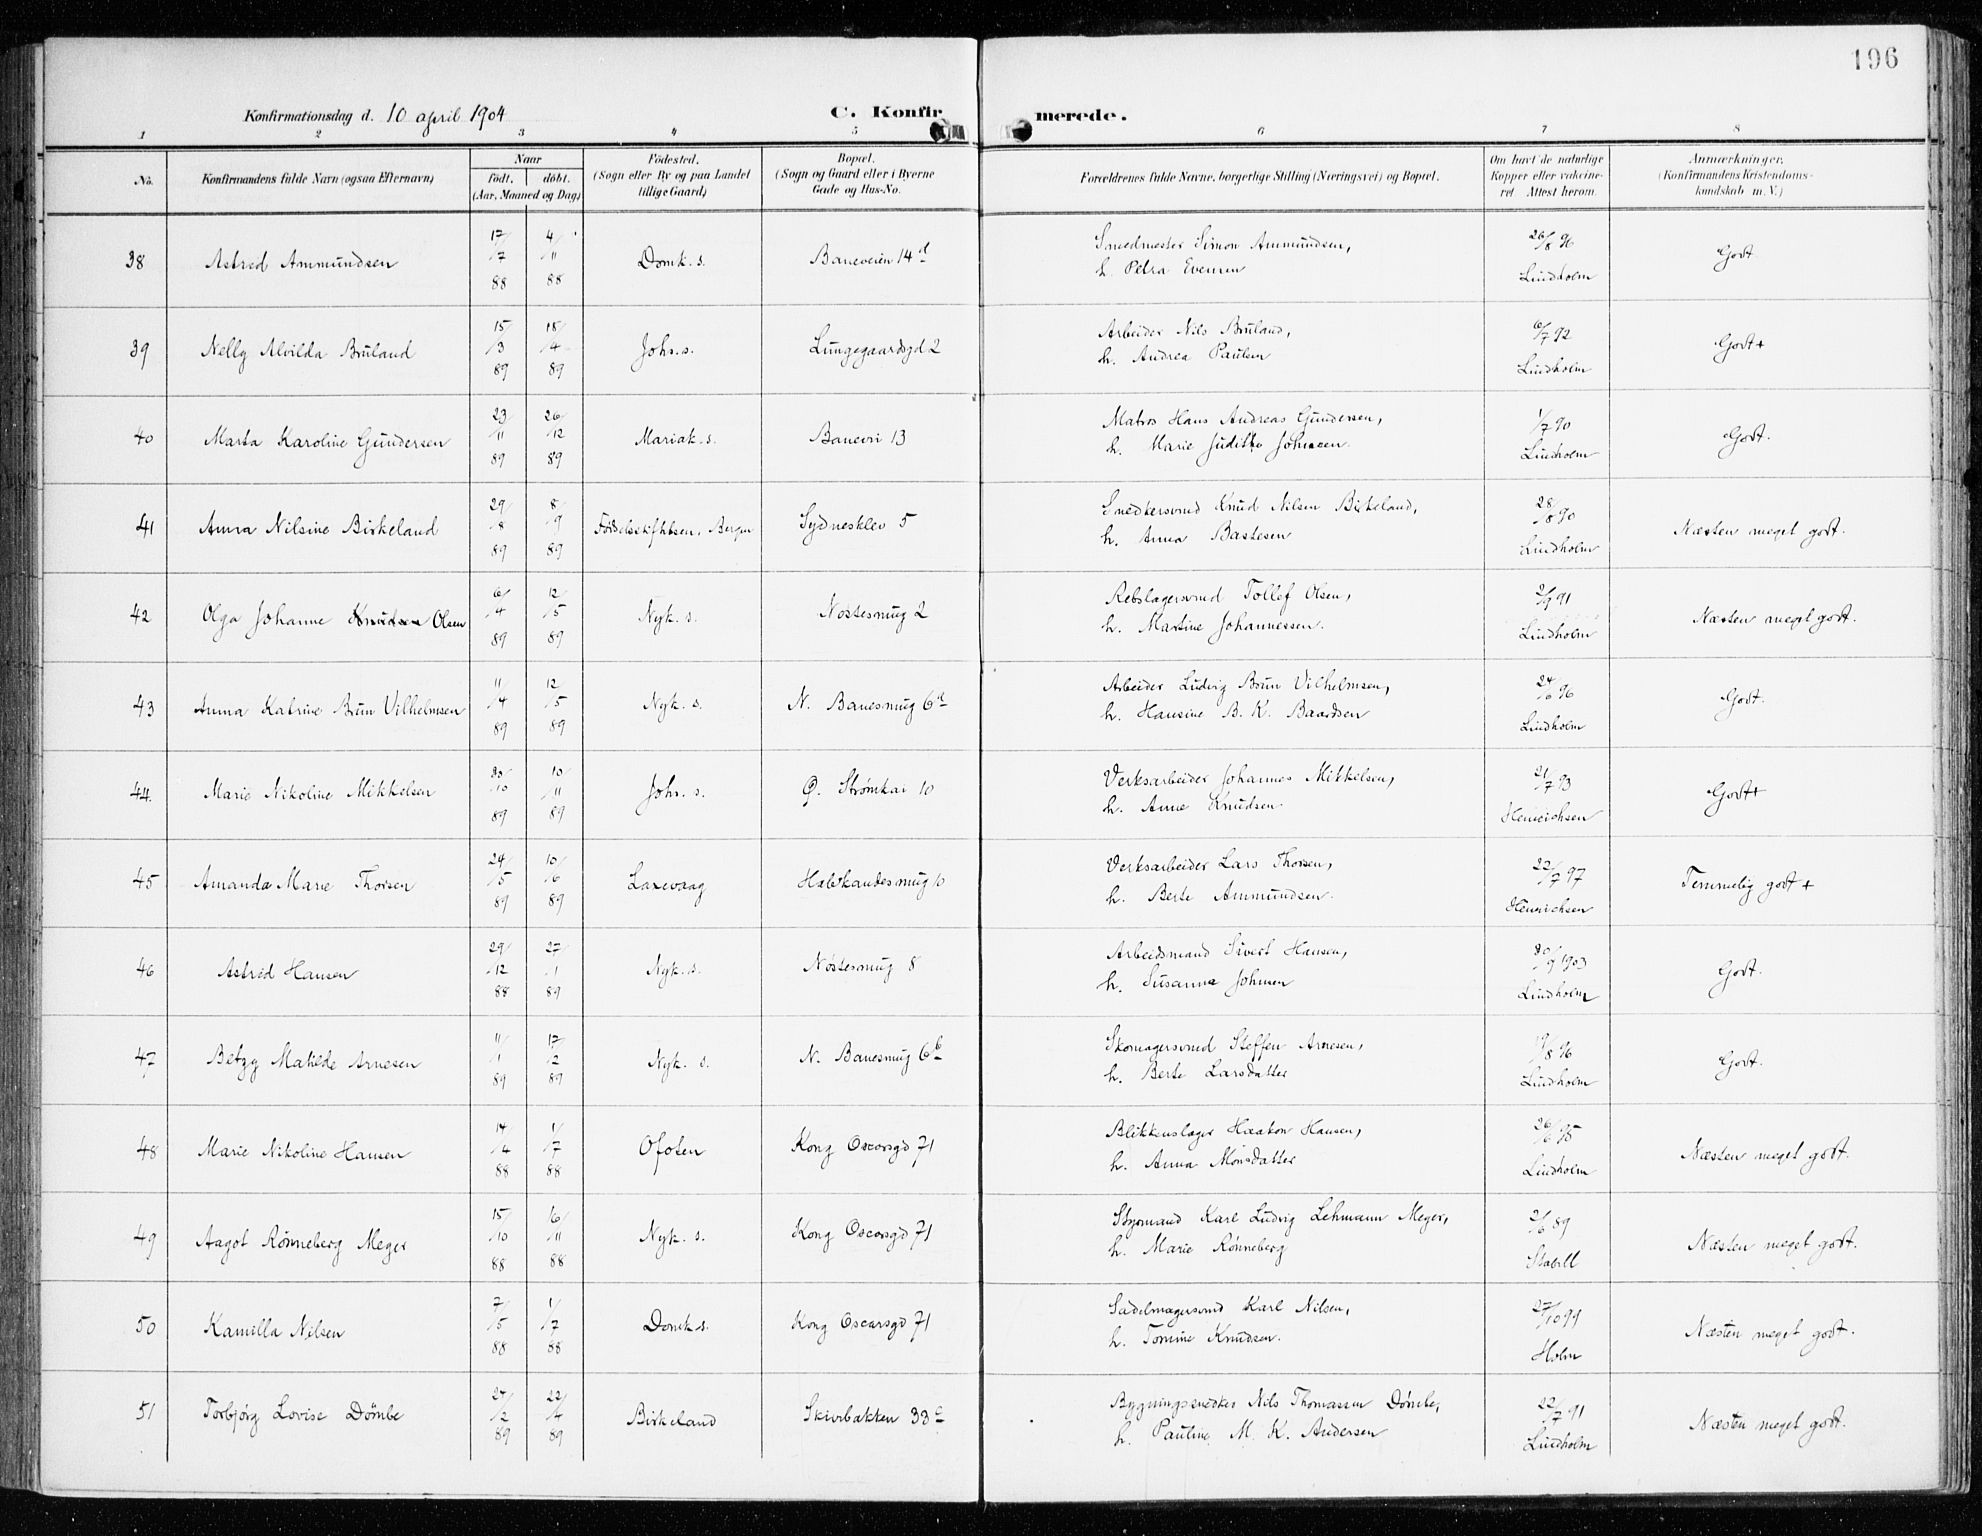 196
Konfirmationsdag d. 10 april 1904
C. Konfirmerede.
1 2 3 4 5 6 7 8
No. Konfirmandens fulde Navn (ogsaa Efternavn) Naar født. døbt. (Aar, Maaned og Dag) Fødested. (Sogn eller By og paa Landet tillige Gaard) Bopæl. (Sogn og Gaard eller i Byerne Gade og Hus-No. Forældrenes fulde Navne, borgerlige Stilling (Næringsvei) og Bopæl. Om havt de naturlige Kopper eller vakcineret. Attest herom. Anmærkninger. (Konfirmandens Kristendomskundskab m. V.)
38 Astrid Ammundsen 17/7 88 4/11 88 Domk. s. Baneveien 14 d Smedmester Simon Ammundsen, h. Petra Evensen 26/8 96 Lindholm Godt
39 Nelly Alvilda Bruland 15/3 89 18/4 89 Johs. s. Lungegaardsgd 2 Arbeider Nils Bruland, h. Andrea Paulsen 6/7 92 Lindholm Godt+
40 Marta Karoline Gundersen 23/11 89 26/12 89 Mariak. s. Banevei 13 Matros Hans Andreas Gundersen, h. Marie Judithe Johnsen 1/7 90 Lindholm Godt.
41 Anna Nilsine Birkeland 29/8 89 8/9 89 Fødselsstiftelsen, Bergen Sydnesklev 5 Snedkersvend Knud Nilsen Birkeland, h. Anna Bastesen 28/8 90 Lindholm Næsten meget godt.
42 Olga Johanne Knudsen Olsen 6/4 89 12/5 89 Nyk. s. Nøstesmug 2 Rebslagersvend Tollef Olsen, h. Martine Johannessen. 2/9 91 Lindholm Næsten meget godt.
43 Anna Katrine Brun Vilhelmsen 11/4 89 12/5 89 Nyk. s. N. Banesmug 6 a Arbeider Ludvig Brun Vilhelmsen, h. Hansine B. K. Baardsen 24/6 96 Lindholm Godt.
44. Marie Nikoline Mikkelsen 30/10 89 10/11 89 Johs. s. Ø. Strømkai 10 Verksarbeider Johannes Mikkelsen, h. Anne Knudsen 21/7 93 Henrichsen Godt+
45 Amanda Marie Thorsen 24/5 89 10/6 89 Laxevaag Halvkandesmug 10 Verksarbeider Lars Thorsen, h. Berte Ammundsen. 22/7 97 Henrichsen Temmelig godt+
46 Astrid Hansen 29/12 88 27/1 89 Nyk. s. Nøstesmug 8 Arbeidsmand Sivert Hansen, h. Susanne Johnsen 30/9 1903 Lindholm Godt.
47 Betzy Matilde Arnesen 11/1 89 17/2 89 Nyk. s. N. Banesmug 6 b Skomagersvend Steffen Arnesen, h. Berte Larsdatter 19/8 96 Lindholm Godt.
48 Marie Nikoline Hansen 14/4 88 1/7 88 Ofoten Kong Oscarsgd 71 Blikkenslager Haakon Hansen, h. Anna Monsdatter 26/6 95 Lindholm Næsten meget godt.
49 Aagot Rønneberg Meyer 15/10 88 16/11 88 Nyk. s. Kong Oscarsgd 71 Styrmand Karl Ludvig Lehmann Meyer, h. Marie Rønneberg 2/6 89 Næsten meget godt.
50 Kamilla Nilsen 7/5 88 1/7 88 Domk s. Kong Oscarsgd 71 Sadelmagersvend Karl Nilsen, h. Tomine Knudsen. 27/10 99 Holm Næsten meget godt.
51 Torbjørg Lovise Dømbe 27/2 89 22/4 89 Birkeland Skivebakken 33 c Bygningssnedker Nils Thomassen Dømbe, h. Pauline M. K. Andersen 22/7 91 Lindholm Næsten meget godt.